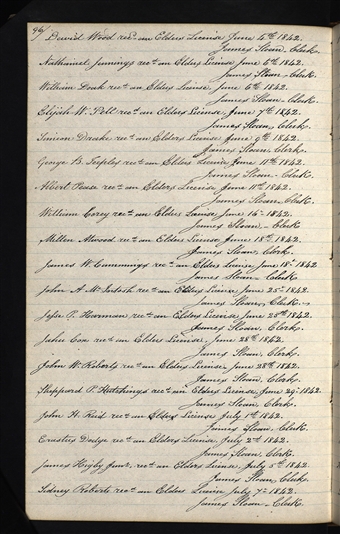 96
David Wood recd an Elders License June 4th 1842.
James Sloan, Clerk.
Nathaniel Jennings recd an Elders License June 6th 1842.
James Sloan - Clerk.
William Doak recd an Elders License June 6th 1842.
James Sloan - Clerk.
Elijah W. Pell recd an Elders License June 7th 1842.
James Sloan, Clerk.
Simion Drake recd an Elders License June 9th 1842.
James Sloan, Clerk.
George B. Teeples recd an Elders License June 11th 1842.
James Sloan - Clerk.
Albert Pease recd an Elders License June 11th 1842.
James Sloan, Clerk.
William Corey recd an Elders License June 16th 1842.
James Sloan - Clerk.
Millen Atwood recd an Elders License June 18th 1842.
James Sloan, Clerk.
James W. Cummings recd an Elders License June 18th 1842
James Sloan - Clerk
John A. McIntosh recd an Elders License June 25th 1842.
James Sloan, Clerk.
Jesse P. Harmon recd an Elders License June 25th 1842.
James Sloan, Clerk.
John Cox recd an Elders License June 28th 1842.
James Sloan, Clerk.
John W. Roberts recd an Elders License June 28th 1842.
James Sloan, Clerk.
Sheppard P. Hutchings recd an Elders License, June 29th 1842.
James Sloan, Clerk.
John H. Reid recd an Elders License July 1st 1842.
James Sloan, Clerk.
Erastus Dodge recd an Elders License, July 2nd 1842.
James Sloan, Clerk.
James Higby Junr. recd an Elders License, July 5th 1842.
James Sloan, Clerk.
Sidney Roberts recd an Elders License July 7th 1842.
James Sloan - Clerk.